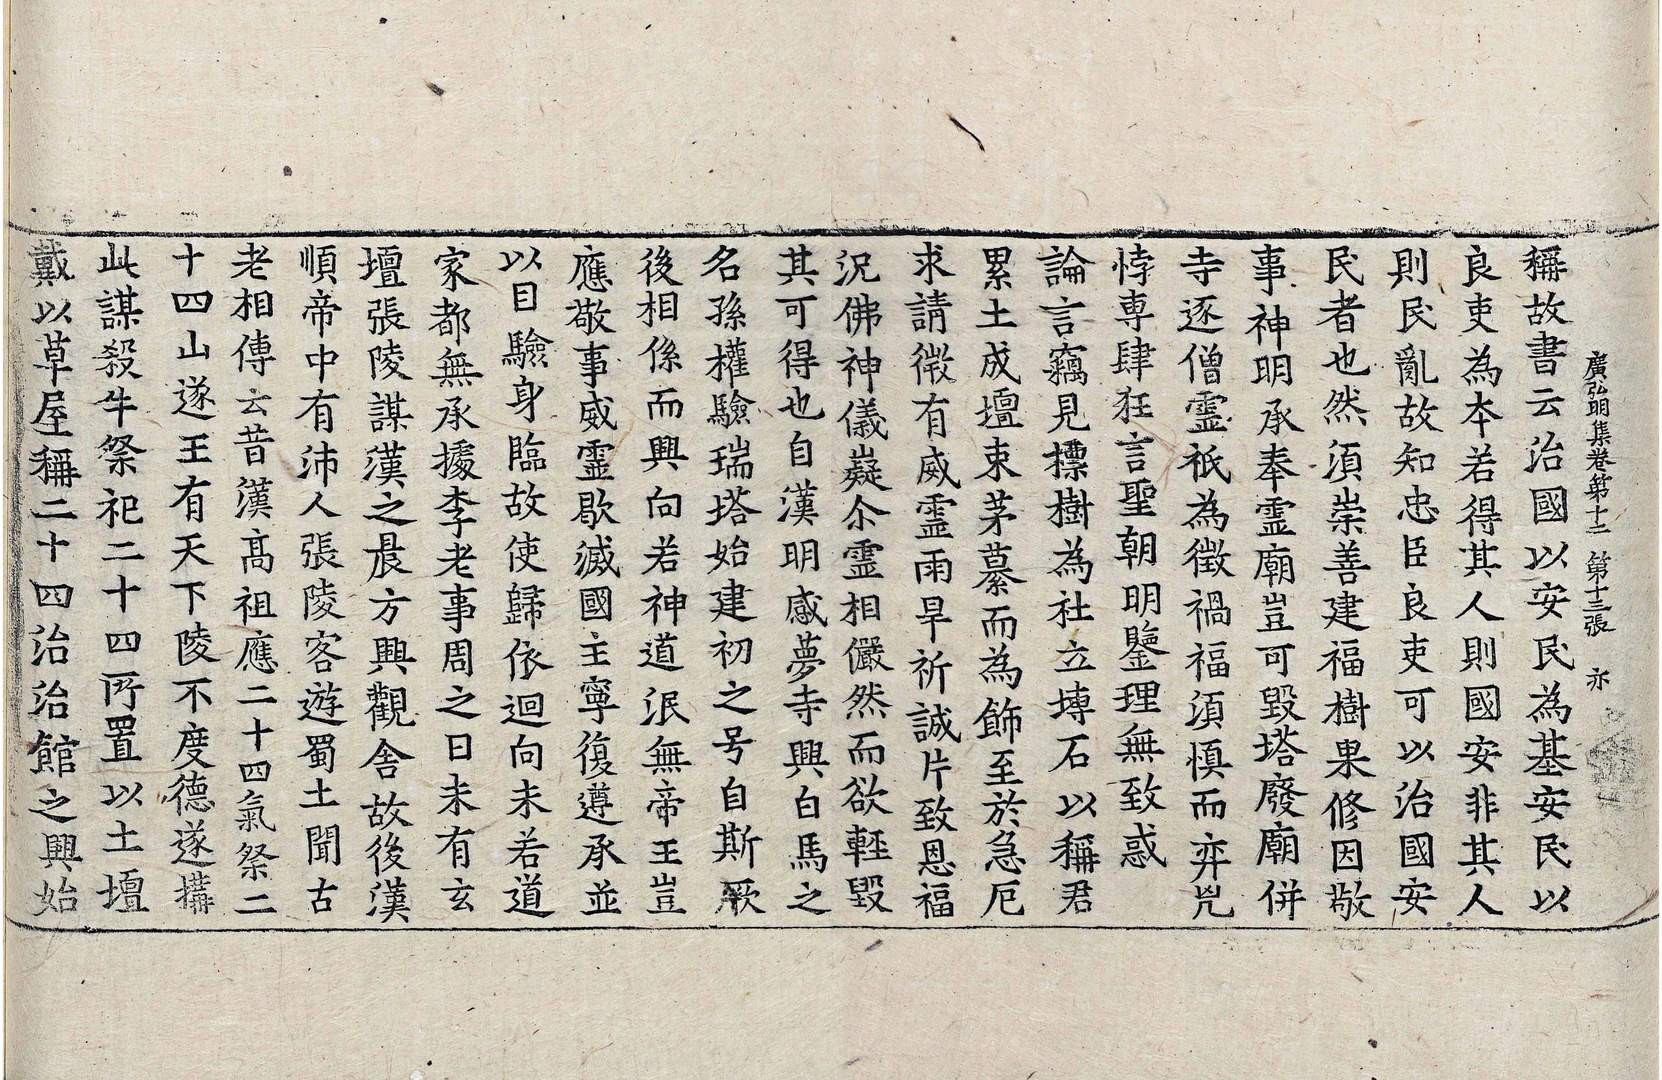 廣弘明集卷第十二 第十三張 亦
稱故書云治國以安民為基安民以
良吏為本若得其人則國安非其人
則民亂故知忠臣良吏可以治國安
民者也然須崇善建福樹果修因敬
事神明承奉霊廟豈可毀塔廢廟併
寺逐僧霊祇為徵禍福須慎而弃兇
悖専肆狂言聖朝明鑒理無致惑
論言竊見摽樹為社立塼石以稱君
累土成壇束茅纂而為飾至於急厄
求請徵有威霊雨旱祈誠片致恩福
況佛神儀嶷尒霊相儼然而欲輕毀
其可得也自漢明感夢寺興白馬之
名孫權驗瑞塔始建初之号自斯厥
後相係而興向若神道泯無帝王豈
應敬事威霊歇滅國主寧復遵承並
以目驗身臨故使歸依迴向未若道
家都無承據李老事周之日未有玄
壇張陵謀漢之晨方興觀舎故後漢
順帝中有沛人張陵客遊蜀土聞古
老相傳云昔漢髙祖應二十四氣祭二
十四山遂王有天下陵不度德遂搆
此謀殺牛祭祀二十四所置以土壇
戴以草屋稱二十四治治館之興始